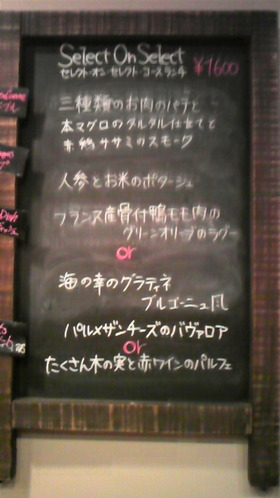 Select On Select
セレクト・オン・セレクト・コースランチ ¥1600
三種類のお肉のパテと
本マグロのタルタル仕立てと
赤鶏ササミのスモーク
人参とお米のポタージュ
フランス産骨付鴨モモ肉の
グリーンオリーブのラグー
or
海の幸のグラティネ
ブルゴーニュ風
パルメザンチーズのバヴァロア
or
たくさん木の実と赤ワインのパルフェ